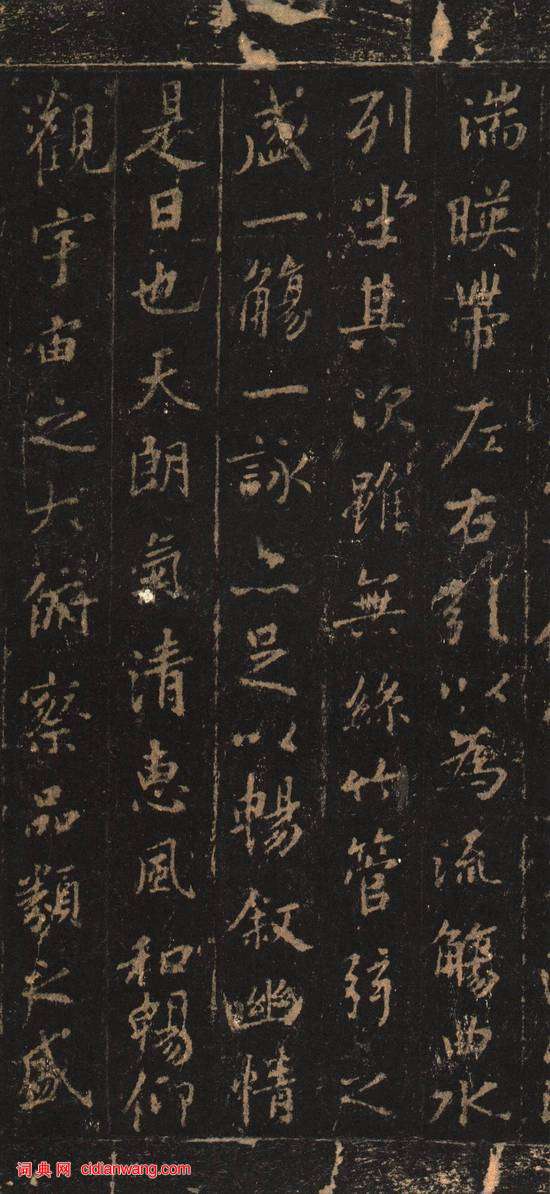 湍暎帶左右引以為流觴曲水
列坐其次雖無絲竹管弦之
盛一觴一詠亦足以暢敘幽情
是日也天朗氣清惠風和暢仰
觀宇宙之大俯察品類之盛
词典网 cidianwang.com